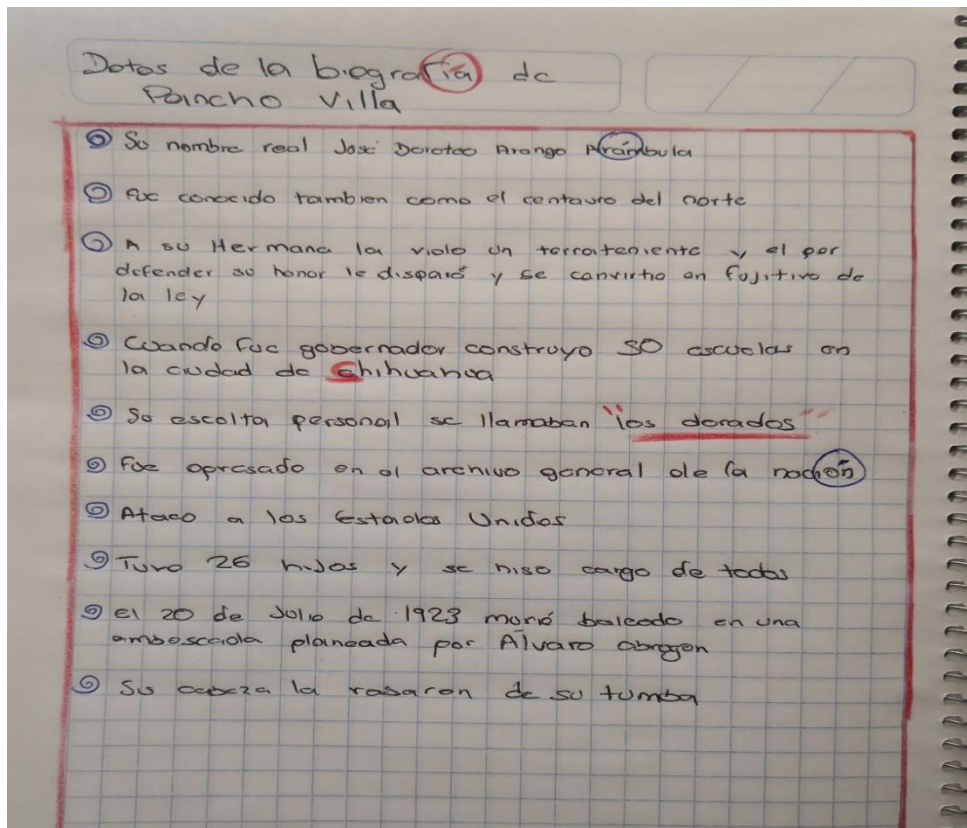 Datos de la biografía de
Pancho Villa
Su nombre real José Doroteo Arango Arámbula
Fue conocido tambien como el centauro del norte
A su Hermana la violo un terrateniente y el por
defender su honor le disparó y se convirtio en fujitivo de
la ley
Cuando fue gobernador construyo 50 escuelas en
la ciudad de Chihuahua
Su escolta personal se llamaban "los dorados"
Fue apresado en el archivo general de la nación
Ataco a los Estados Unidos
Tuvo 26 hijos y se hiso cargo de todos
el 20 de Julio de 1923 murió baleado en una
emboscada planeada por Álvaro obregon
Su cabeza la rosaron de su tumba